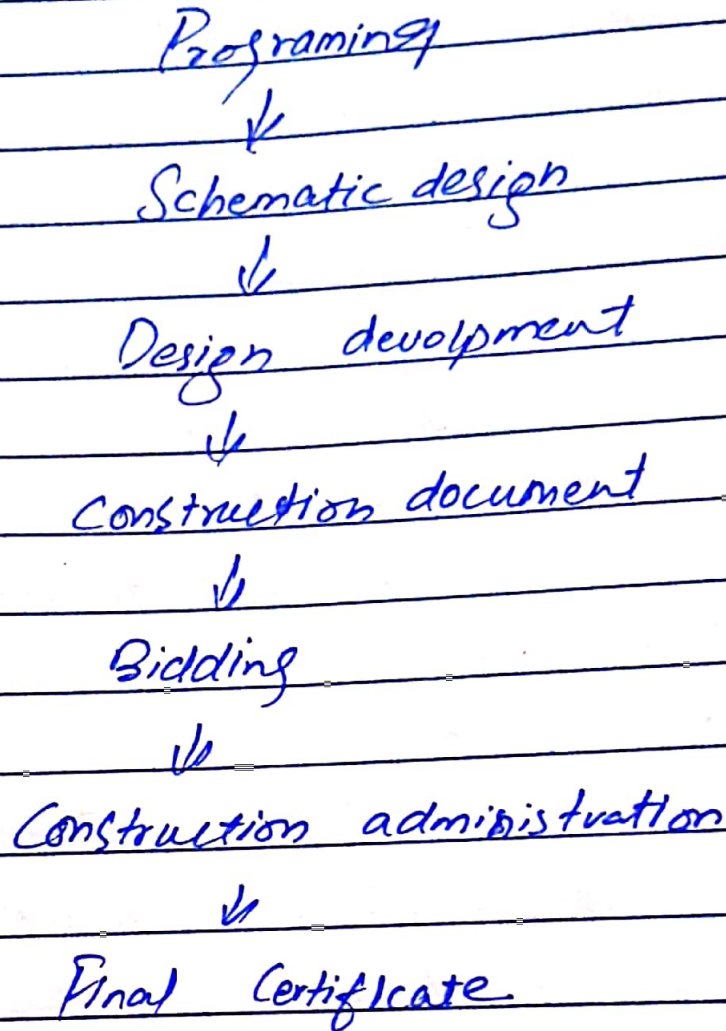 Programing
↓
Schematic design
↓
Design devolpment
↓
Construction document
↓
Bidding
↓
Construction administration
↓
Final Certificate